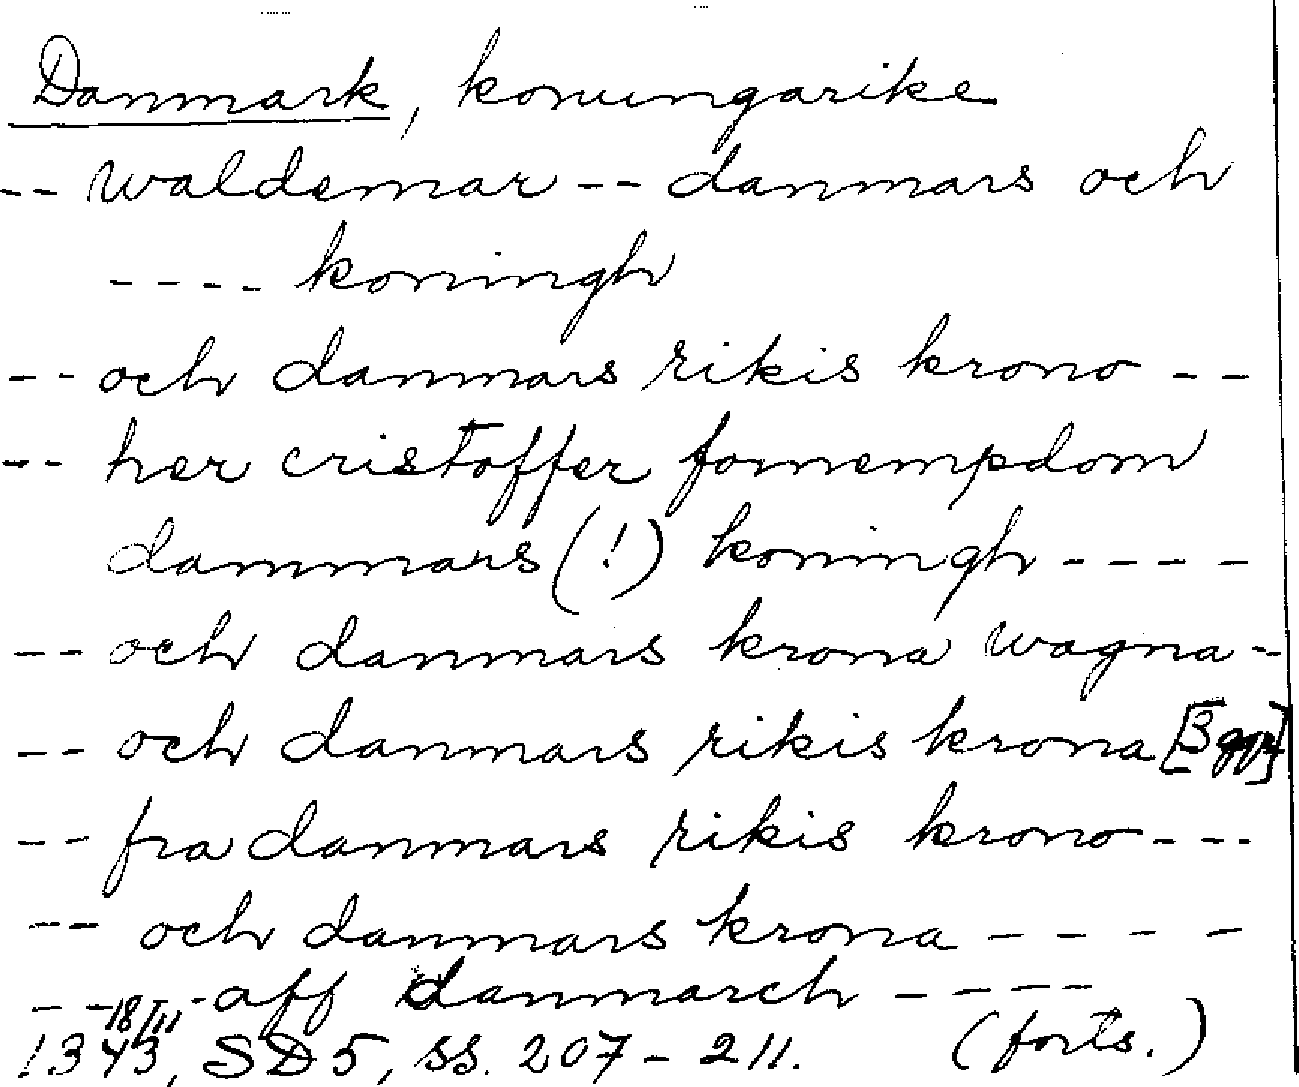 Danmark, konungarike
-- waldemar -- danmars och
---- koningh
-- och danmars rikis krono --
-- her cristoffer fornempdom
dammars (!) koningh ----
-- och danmars krona wagna -
-- och danmars rikis krona [3 ggr]
-- fra danmars rikis krono ---
-- och danmars krona ----
--- aff danmarch ----
18/11 1343, SD5, ss. 207-211. (forts.)